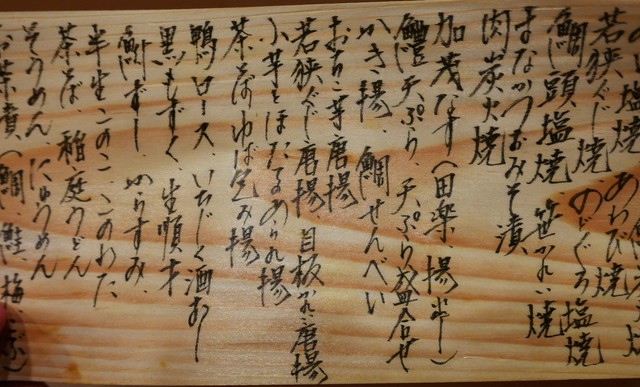 若狭ぐじ焼 あわび焼
鯛頭塩焼 のどぐろ塩焼
まなかつおみそ漬 笹かれい焼
肉炭火焼
加茂なす(田楽、揚出し)
鱧天ぷら 天ぷら盛合せ
かき揚 鯛せんべい
若狭ぐじ唐揚 目板かれい唐揚
小芋とほたるあられ揚
茶そばゆば包み揚
鴨ロース、いちじく酒むし
黒もずく、生順才
鮒ずし からすみ、
半生このこ このわた
茶そば、稲庭うどん
そうめん、にゅうめん
お茶漬(鯛、鮭、梅、こぶ)